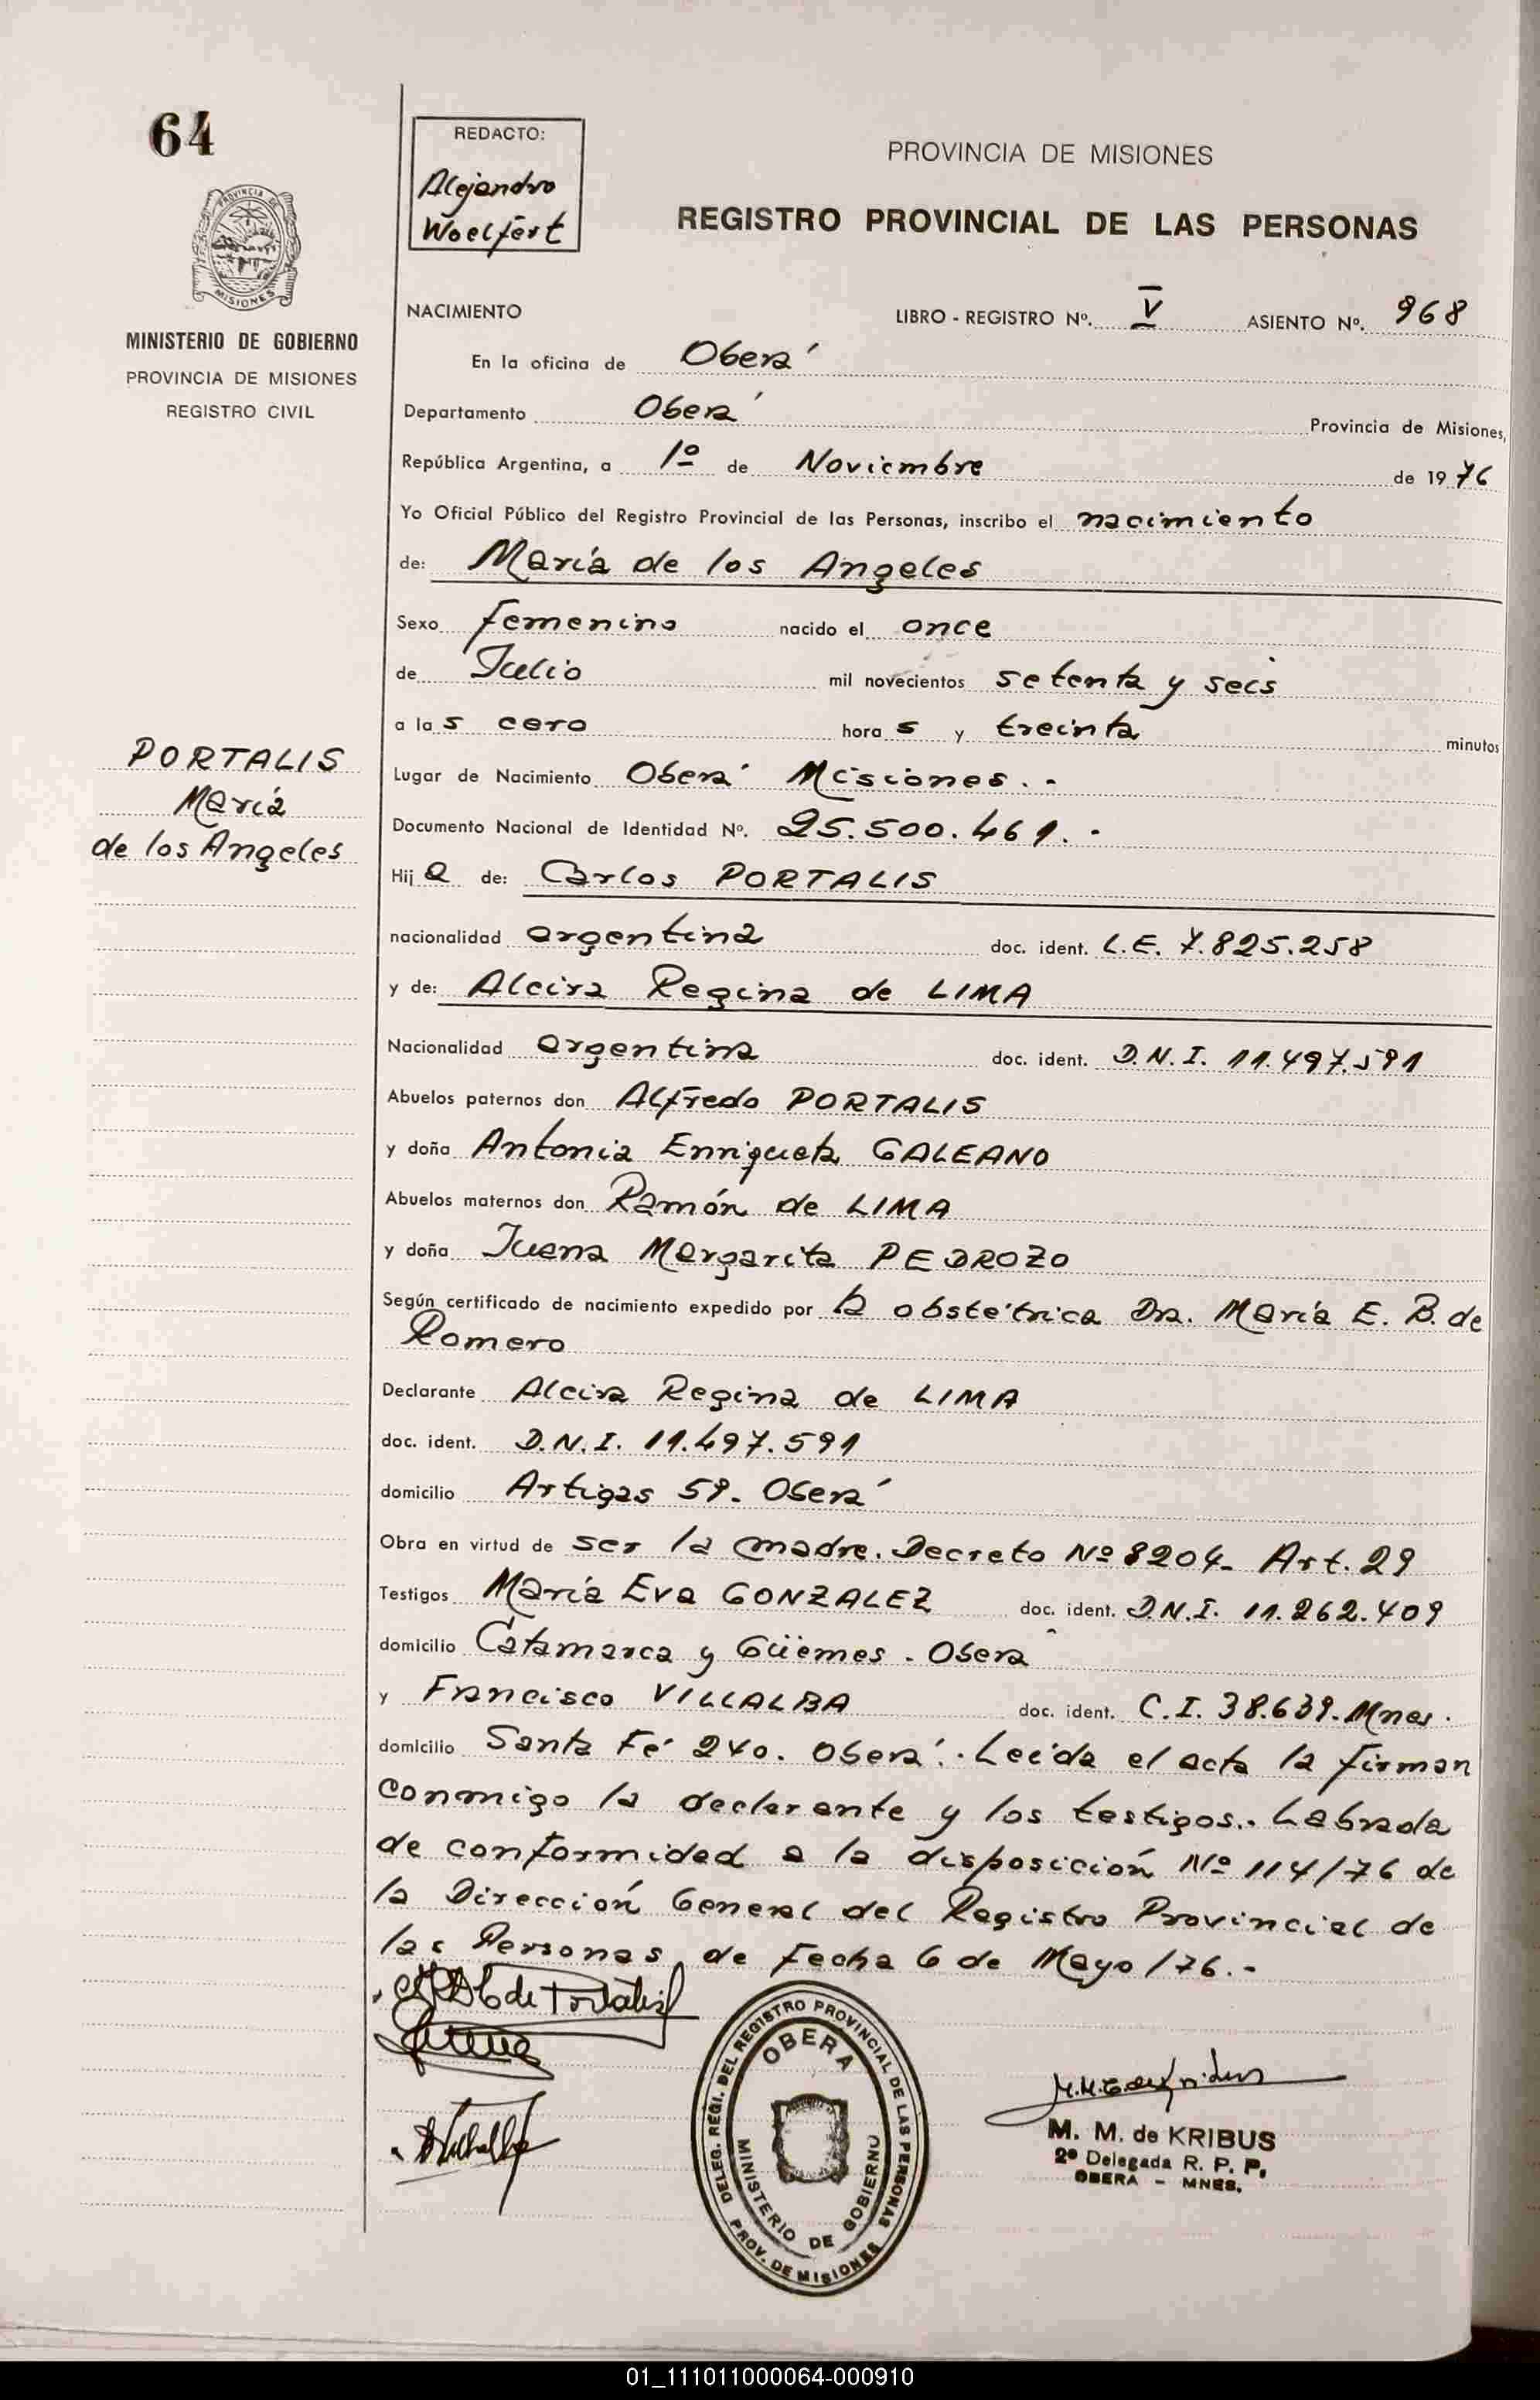 64
REDACTO:
Alejandro
Woelfert
PROVINCIA DE MISIONES
REGISTRO PROVINCIAL DE LAS PERSONAS
PROVINCIA DE
MISIONES
MINISTERIO DE GOBIERNO
PROVINCIA DE MISIONES
REGISTRO CIVIL
NACIMIENTO LIBRO - REGISTRO Nº. V ASIENTO Nº. 968
En la oficina de Oberá
Departamento Oberá Provincia de Misiones,
República Argentina, a 1º de Noviembre de 1976
Yo Oficial Público del Registro Provincial de las Personas, inscribo el nacimiento
de: María de los Angeles
Sexo femenino nacido el once
de Julio mil novecientos setenta y seis
a las cero horas y treinta minutos
PORTALIS
María
de los Angeles
Lugar de Nacimiento Oberá Misiones. -
Documento Nacional de Identidad Nº. 25.500.461. -
Hija de: Carlos PORTALIS
nacionalidad argentina doc. ident. L.E. 7.825.258
y de: Alcira Regina de LIMA
Nacionalidad argentina doc. ident. D.N.I. 11.497.591
Abuelos paternos don Alfredo PORTALIS
y doña Antonia Enriqueta GALEANO
Abuelos maternos don Ramón de LIMA
y doña Juana Margarita PEDROZO
Según certificado de nacimiento expedido por la obstétrica Dra. María E. B. de
Romero
Declarante Alcira Regina de LIMA
doc. ident. D.N.I. 11.497.591
domicilio Artigas 59. Oberá
Obra en virtud de ser la madre. Decreto Nº 8204- Art. 29
Testigos María Eva GONZALEZ doc. ident. D.N.I. 11.262.409
domicilio Catamarca y Güemes. Oberá
y Francisco VILLALBA doc. ident. C.I. 38.639. Mnes.
domicilio Santa Fé 240. Oberá. Leída el acta la firman
conmigo la declarante y los testigos.. Labrada
de conformidad a la disposición Nº 114/76 de
la Dirección General del Registro Provincial de
las Personas de Fecha 6 de Mayo /76.-
de Portalis
DELEG. REGI. DEL REGISTRO PROVINCIAL DE LAS PERSONAS
OBERA
MINISTERIO DE GOBIERNO
PROV. DE MISIONES
M. M. de KRIBUS
2º Delegada R. P. P.
OBERA - MNES.
01_111011000064-000910